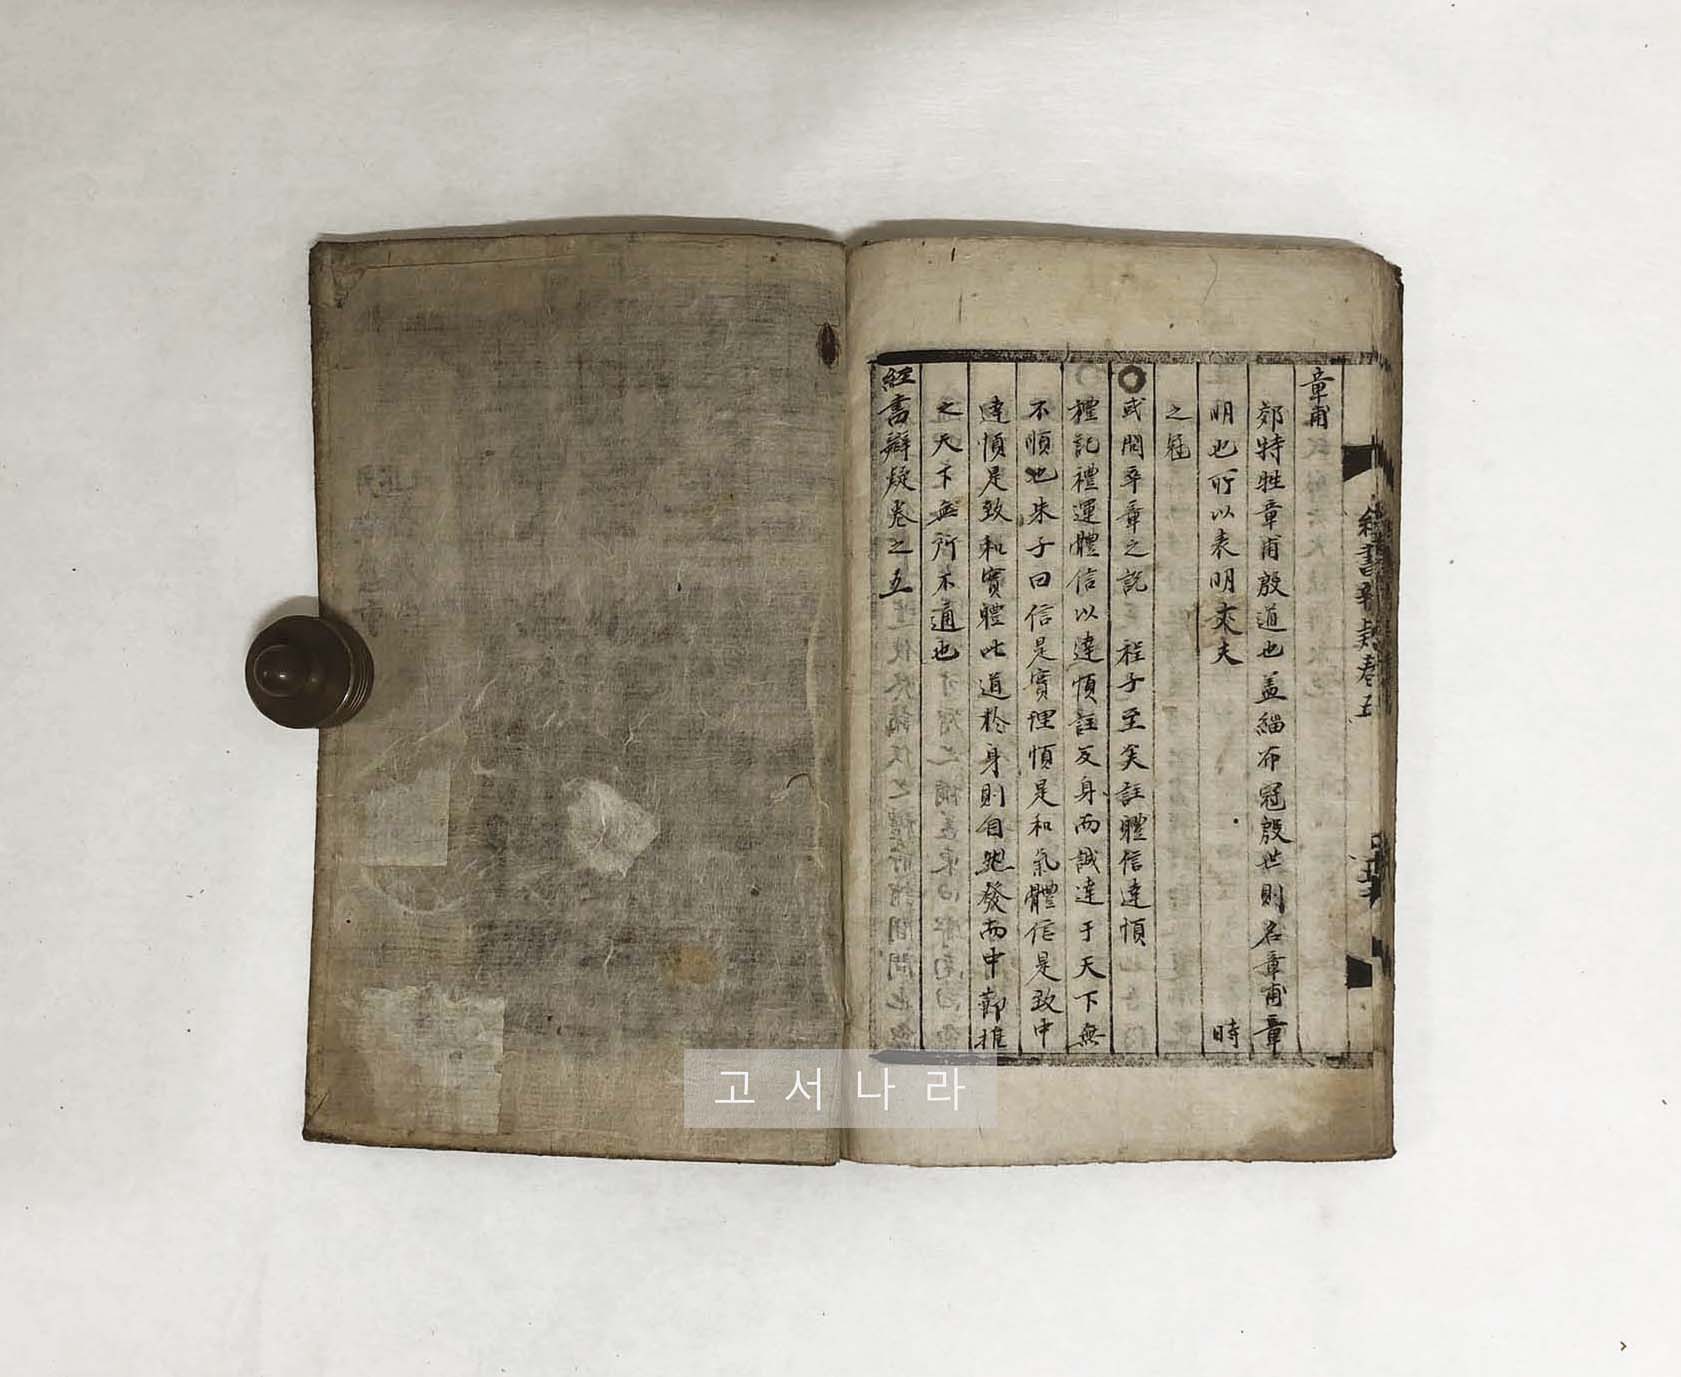 章甫
郊特牲章甫殷道也盖緇布冠殷世則名章甫章
明也所以表明丈夫 時
之冠
或問卒章之說 程子至矣註體信達順
禮記禮運體信以達順註反身而誠達于天下無
不順也朱子曰信是實理順是和氣體信是致中
達順是致和實體此道於身則自然發而中節推
之天下無所不通也
經書辨疑卷之五
經書辨疑卷五
고서나라